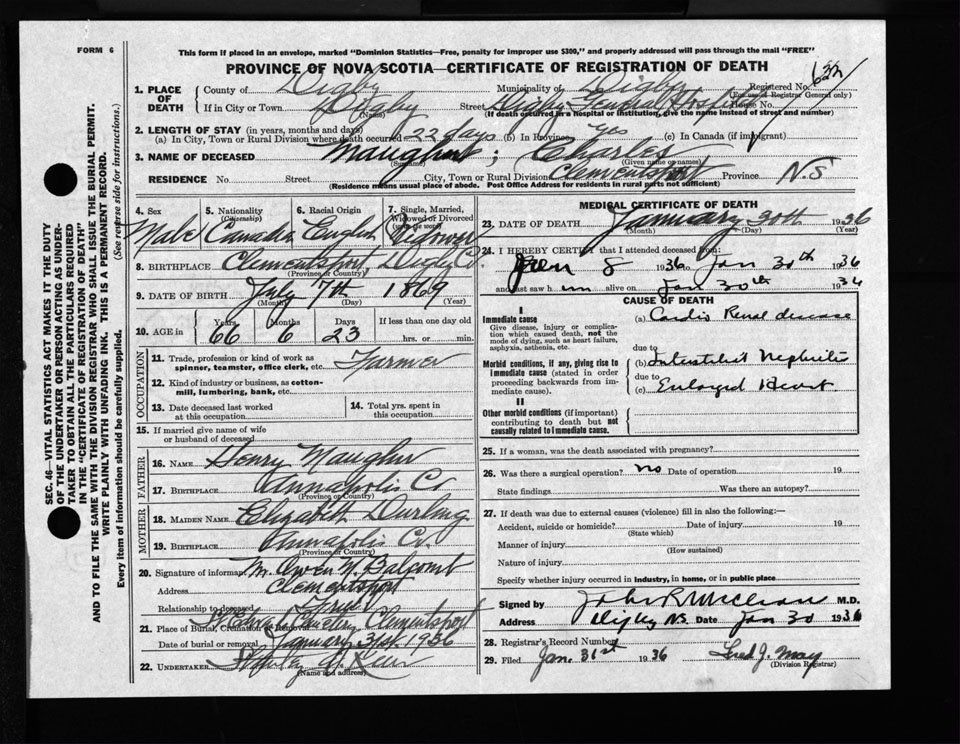 FORM 6
This form if placed in an envelope, marked "Dominion Statistics—Free, penalty for improper use $300," and properly addressed will pass through the mail "FREE"
PROVINCE OF NOVA SCOTIA—CERTIFICATE OF REGISTRATION OF DEATH
Registered No.
(For use of Registrar General only)
1. PLACE OF DEATH
County of Digby Municipality of Digby
If in City or Town Digby Street Digby General Hospital No.
(Name) (If death occurred in a hospital or institution, give the name instead of street and number)
2. LENGTH OF STAY (in years, months and days)
(a) In City, Town or Rural Division where death occurred 22 days (b) In Province Yes (c) In Canada (if immigrant)
3. NAME OF DECEASED ; Charles
(Surname) (Given name or names)
RESIDENCE No. Street City, Town or Rural Division Clementsport Province N.S
(Residence means usual place of abode. Post Office Address for residents in rural parts not sufficient)
4. Sex Male
5. Nationality (Citizenship) Canadian
6. Racial Origin English
7. Single, Married, Widowed or Divorced (write the word)
8. BIRTHPLACE Clementsport Digby Co.
(Province or Country)
9. DATE OF BIRTH July 7th 1869
(Month) (Day) (Year)
10. AGE in Years 66 Months 6 Days 23 If less than one day old hrs. or min.
OCCUPATION
11. Trade, profession or kind of work as spinner, teamster, office clerk, etc. Farmer
12. Kind of industry or business, as cotton-mill, lumbering, bank, etc.
13. Date deceased last worked at this occupation
14. Total yrs. spent in this occupation
15. If married give name of wife or husband of deceased
FATHER
16. NAME Henry
17. BIRTHPLACE Annapolis Co
(Province or Country)
MOTHER
18. MAIDEN NAME Elizabeth Durling
19. BIRTHPLACE Annapolis Co.
(Province or Country)
20. Signature of informant Mr. Owen W. Balcomb
Address Clementsport
Relationship to deceased Friend
21. Place of Burial, Cremation or Removal Cemetery Clementsport
Date of burial or removal January 31st 1936
22. UNDERTAKER
(Name and address)
MEDICAL CERTIFICATE OF DEATH
23. DATE OF DEATH January 30th 1936
(Month) (Day) (Year)
24. I HEREBY CERTIFY that I attended deceased from
Jan 8 1936 to Jan 30th 1936
and last saw him alive on Jan 30th 1936
CAUSE OF DEATH
I
Immediate cause
Give disease, injury or complication which caused death, not the mode of dying, such as heart failure, asphyxia, asthenia, etc.
(a) Cardio Renal disease
due to
Morbid conditions, if any, giving rise to immediate cause (stated in order proceeding backwards from immediate cause).
(b) Interstitial Nephritis
due to
(c) Enlarged Heart
II
Other morbid conditions (if important) contributing to death but not causally related to immediate cause.
25. If a woman, was the death associated with pregnancy?
26. Was there a surgical operation? no Date of operation 19
State findings Was there an autopsy?
27. If death was due to external causes (violence) fill in also the following:—
Accident, suicide or homicide? Date of injury 19
(State which)
Manner of injury
(How sustained)
Nature of injury
Specify whether injury occurred in industry, in home, or in public place
Signed by M.D.
Address Digby N.S. Date Jan 30 1936
28. Registrar's Record Number
29. Filed Jan. 31st 1936 Fred J. May
(Division Registrar)
SEC. 46— VITAL STATISTICS ACT MAKES IT THE DUTY
OF THE UNDERTAKER OR PERSON ACTING AS UNDER-
TAKER TO OBTAIN ALL THE PARTICULARS REQUIRED
IN THE "CERTIFICATE OF REGISTRATION OF DEATH"
AND TO FILE THE SAME WITH THE DIVISION REGISTRAR WHO SHALL ISSUE THE BURIAL PERMIT.
WRITE PLAINLY WITH UNFADING INK. THIS IS A PERMANENT RECORD.
Every item of information should be carefully supplied. (See reverse side for instructions.)